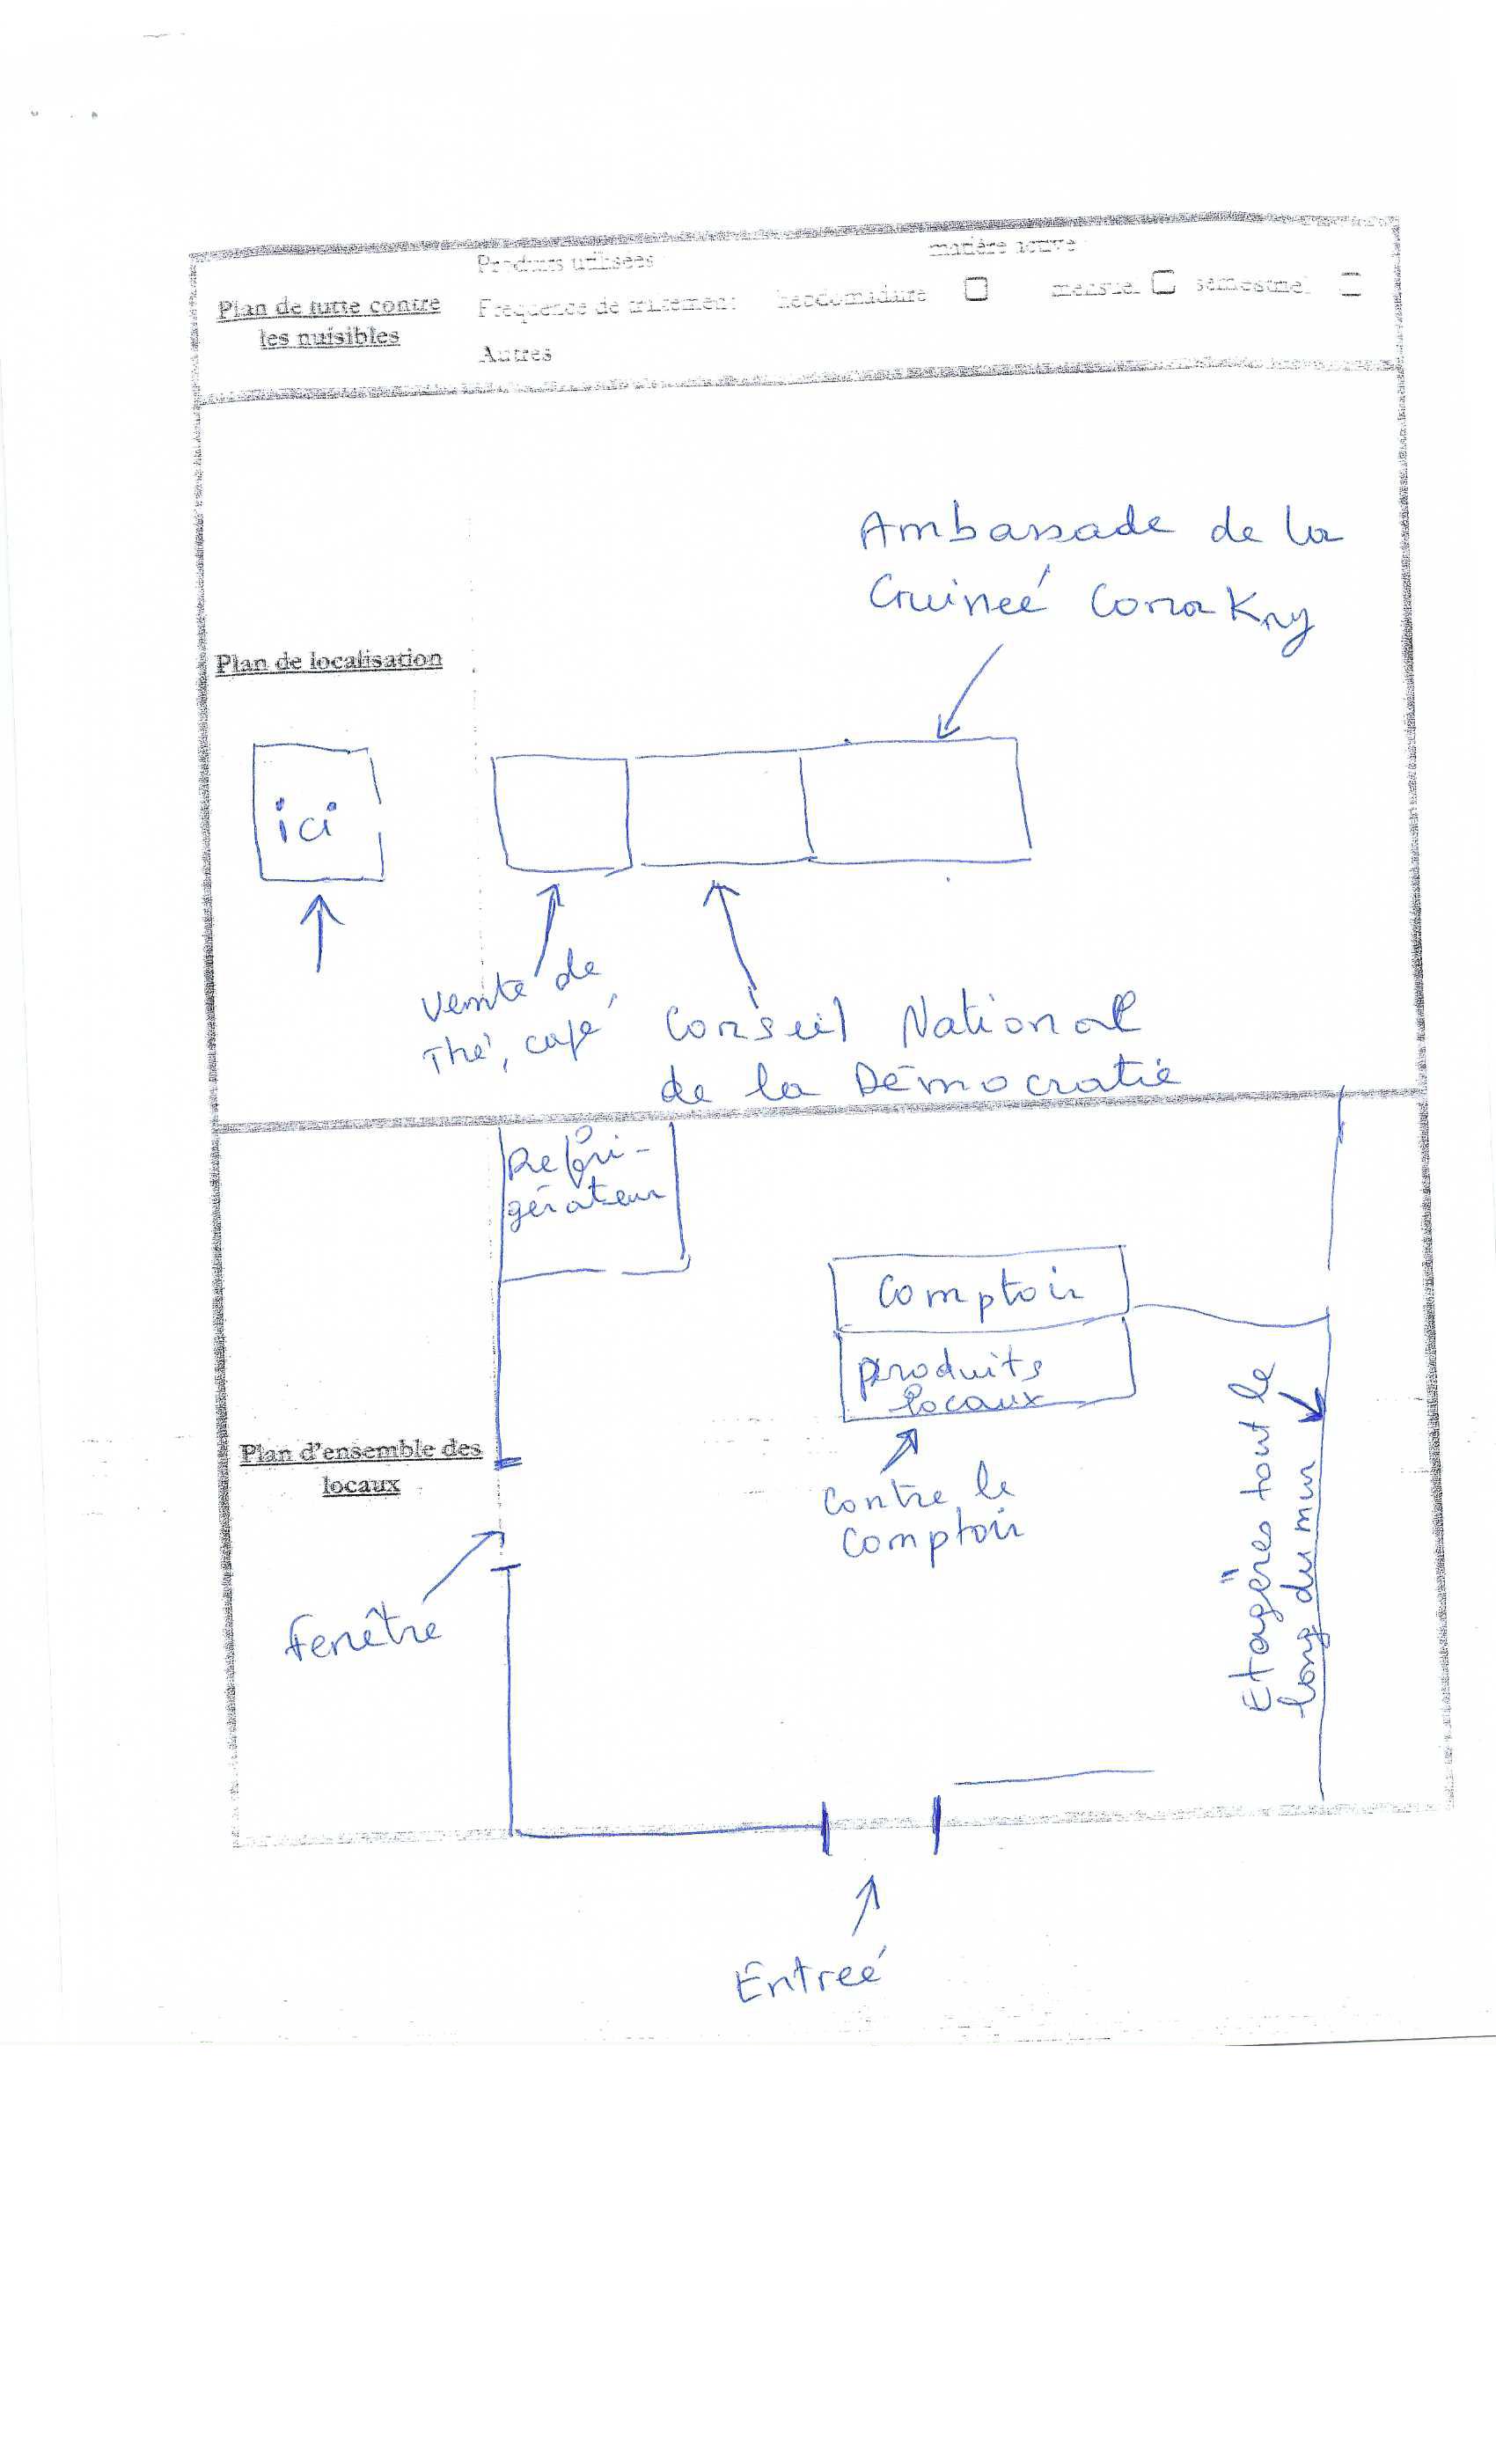 Produits utilisées
matière active
Plan de lutte contre
les nuisibles
Fréquence de traitement hebdomadaire mensuel semestriel
Autres
Ambassade de la
Guineé Conakry
Plan de localisation
ici
Vente de
Thé, café
Conseil National
de la Démocratie
Réfri-
gérateur
Comptoir
produits
locaux
Contre le
Comptoir
Etagères tout le
long du mur
Plan d'ensemble des
locaux
Fenêtre
Entreé